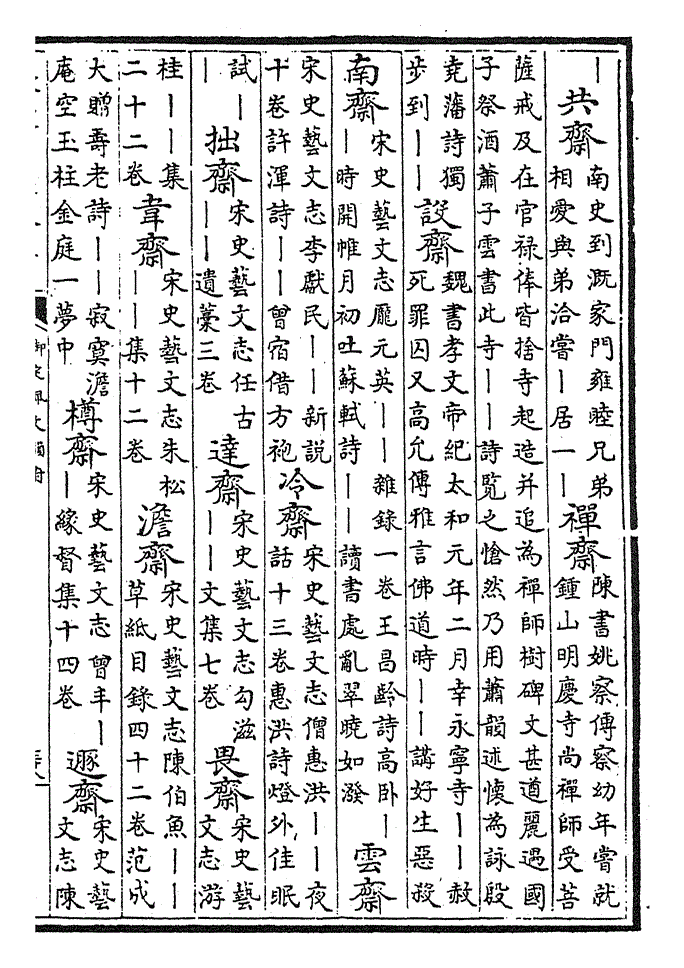 ｜共齋南史到溉家門雍睦兄弟相愛與弟洽嘗｜居一｜禪齋陳書姚察傳察幼年嘗就鍾山明慶寺尚禪師受菩
薩戒及在官禄俸皆捨寺起造并追為禪師樹碑文甚遒麗遇國
子祭酒蕭子雲書此寺｜｜詩覽之愴然乃用蕭韻述懷為詠殷
堯藩詩獨步到｜｜設齋魏書孝文帝紀太和元年二月幸永寧寺｜｜赦死罪囚又高允傳雅言佛道時｜｜講好生惡殺
南齋宋史藝文志龎元英｜｜雜錄一卷王昌齡詩高卧｜｜時開帷月初吐蘇軾詩｜｜讀書處亂翠曉如潑雲齋
宋史藝文志李獻民｜｜新説十卷許渾詩｜｜曾宿借方袍冷齋宋史藝文志僧惠洪｜｜夜話十三卷惠洪詩燈外佳眠
試｜｜拙齋宋史藝文志任古｜｜遺藁三卷達齋宋史藝文志勾滋｜｜文集七卷畏齋宋史藝文志游
桂｜｜集二十二卷韋齋宋史藝文志朱松｜｜集十二卷澹齋宋史藝文志陳伯魚｜｜草紙目錄四十二卷范成
大贈壽老詩｜｜寂寞澹庵空玉柱金庭一夢中樽齋宋史藝文志曾丰｜｜緣督集十四卷遯齋宋史藝文志陳
御定佩文韻府